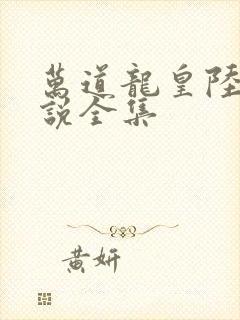 萬道龍皇陸
說全集
黃妍